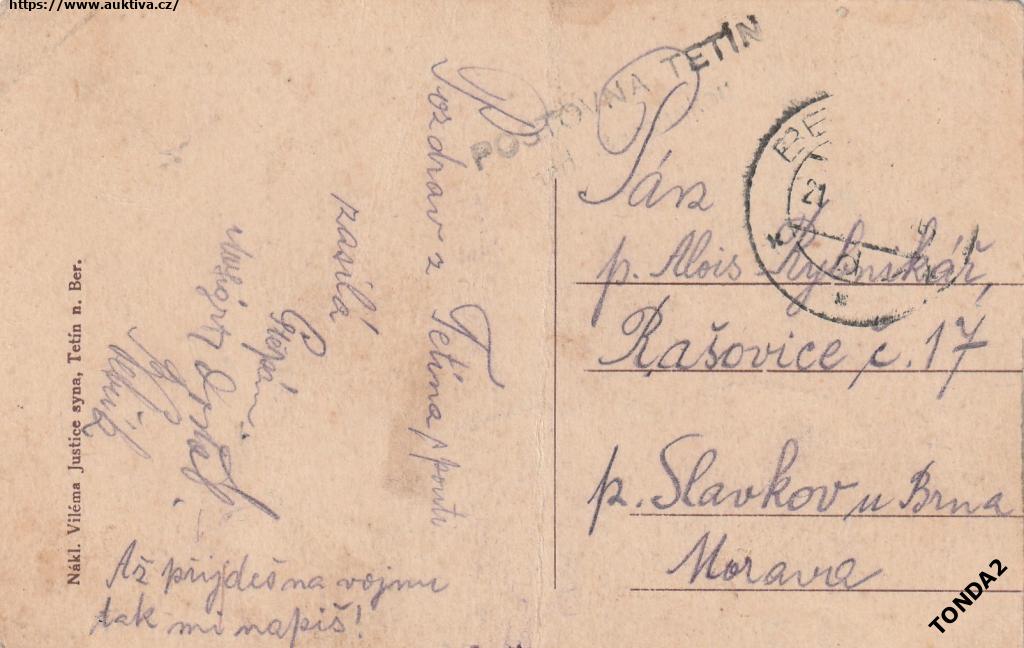 https://www.auktiva.cz/
POŠTOVNA TETÍN
BE
21
Pozdrav z Tetína, pouti
zasílá
Štěpán.
Až přijdeš na vojnu
tak mi napiš!
Nákl. Viléma Justice syna, Tetín n. Ber.
Pán
p. Alois Rybnikář,
Rašovice č. 17
p. Slavkov u Brna
Morava
TONDA2